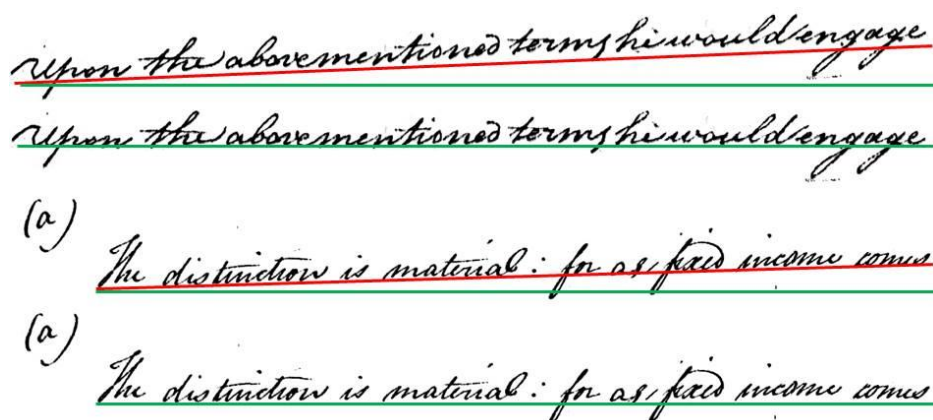 Upon the abovementioned terms he would engage
Upon the abovementioned terms he would engage
(a)
The distinction is material: for as fixed income comes
(a)
The distinction is material: for as fixed income comes